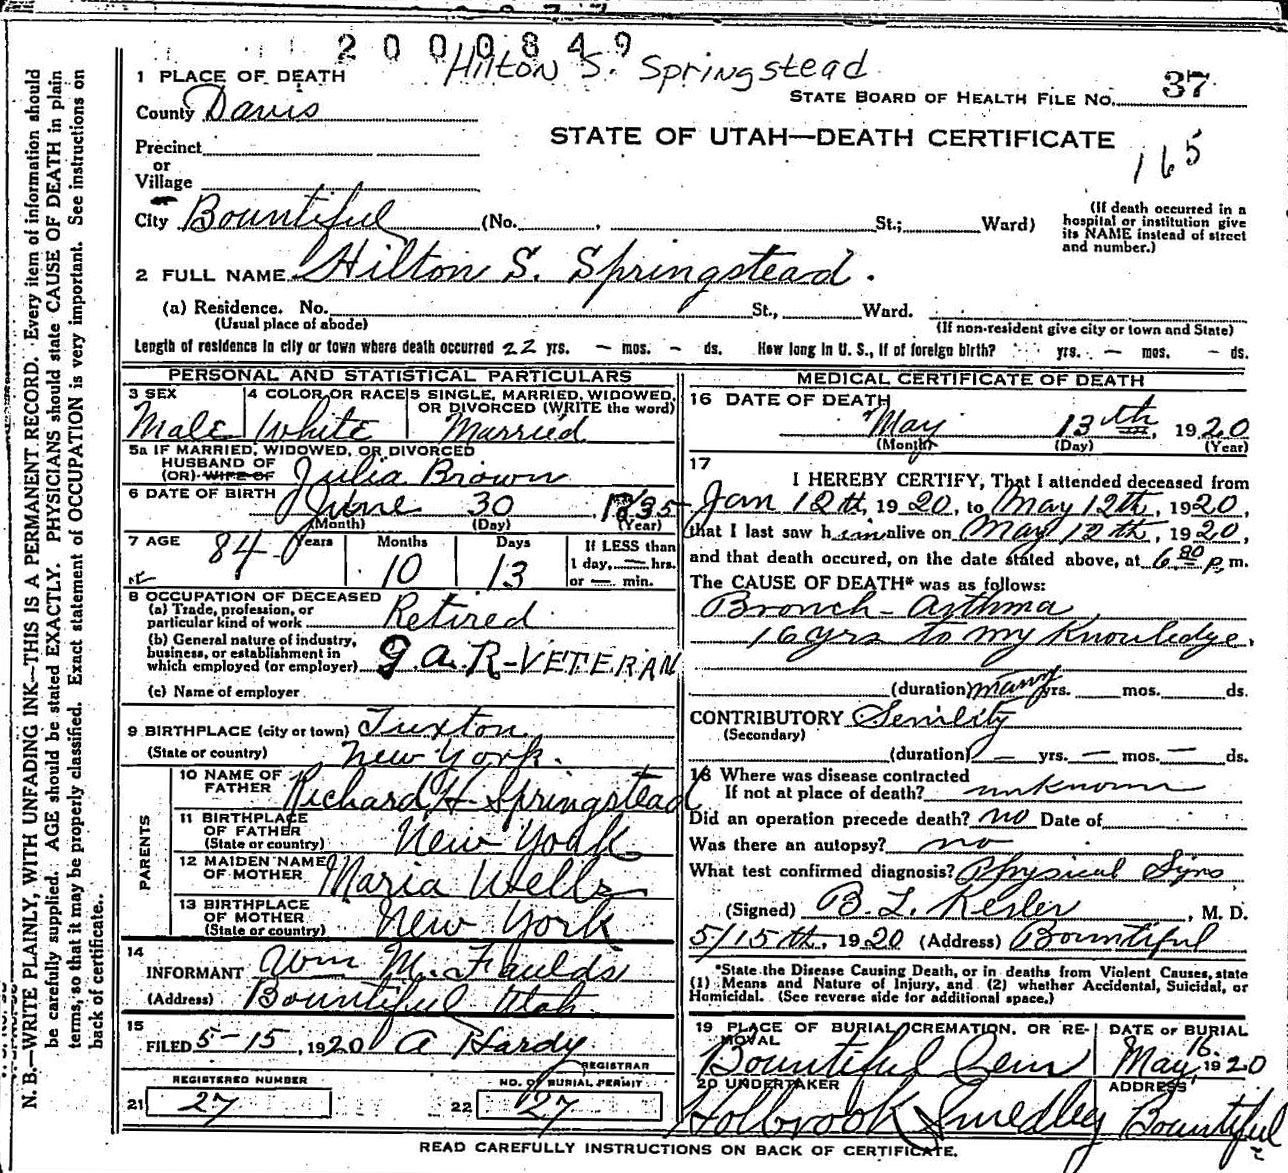 2000849
Hilton S. Springstead
1 PLACE OF DEATH
STATE BOARD OF HEALTH FILE NO. 37
County Davis
STATE OF UTAH—DEATH CERTIFICATE
165
Precinct
or
Village
City Bountiful (No. , St.; Ward)
(If death occurred in a hospital or institution give its NAME instead of street and number.)
2 FULL NAME Hilton S. Springstead.
(a) Residence. No. St., Ward.
(Usual place of abode) (If non-resident give city or town and State)
Length of residence in city or town where death occurred 22 yrs. — mos. — ds. How long in U. S., if of foreign birth? yrs. — mos. — ds.
PERSONAL AND STATISTICAL PARTICULARS
3 SEX Male
4 COLOR OR RACE White
5 SINGLE, MARRIED, WIDOWED, OR DIVORCED (WRITE the word) Married
5a IF MARRIED, WIDOWED, OR DIVORCED
HUSBAND OF
(OR) WIFE OF Julia Brown
6 DATE OF BIRTH June 30 1835
(Month) (Day) (Year)
7 AGE 84 Years 10 Months 13 Days
If LESS than 1 day, — hrs. or — min.
8 OCCUPATION OF DECEASED
(a) Trade, profession, or particular kind of work Retired
(b) General nature of industry, business, or establishment in which employed (or employer) G.A.R-VETERAN
(c) Name of employer
9 BIRTHPLACE (city or town) Tuxton
(State or country) New York.
PARENTS
10 NAME OF FATHER Richard H. Springstead
11 BIRTHPLACE OF FATHER (State or country) New York
12 MAIDEN NAME OF MOTHER Maria Wells
13 BIRTHPLACE OF MOTHER (State or country) New York
14
INFORMANT Wm M. Faulds
(Address) Bountiful Utah
15
FILED 5-15, 1920 A Hardy
REGISTRAR
REGISTERED NUMBER
21 27
NO. OF BURIAL PERMIT
22 27
MEDICAL CERTIFICATE OF DEATH
16 DATE OF DEATH
May 13th, 1920
(Month) (Day) (Year)
17
I HEREBY CERTIFY, That I attended deceased from
Jan 12th, 1920, to May 12th, 1920,
that I last saw him alive on May 12th, 1920,
and that death occured, on the date stated above, at 6 p.m.
The CAUSE OF DEATH* was as follows:
Bronch- Asthma
16 yrs to my Knowledge.
(duration) many yrs. mos. ds.
CONTRIBUTORY Senility
(Secondary)
(duration) — yrs. — mos. — ds.
18 Where was disease contracted
If not at place of death? unknown
Did an operation precede death? no Date of
Was there an autopsy? no
What test confirmed diagnosis? Physical Syns
(Signed) B. L. Kesler, M. D.
5/15th, 1920 (Address) Bountiful
*State the Disease Causing Death, or in deaths from Violent Causes, state
(1) Means and Nature of Injury, and (2) whether Accidental, Suicidal, or
Homicidal. (See reverse side for additional space.)
19 PLACE OF BURIAL, CREMATION, OR REMOVAL
Bountiful Cem
DATE OF BURIAL
May 16. 1920
20 UNDERTAKER
Holbrook Smedley
ADDRESS
Bountiful
READ CAREFULLY INSTRUCTIONS ON BACK OF CERTIFICATE.
N. B.—WRITE PLAINLY, WITH UNFADING INK—THIS IS A PERMANENT RECORD. Every item of information should
be carefully supplied. AGE should be stated EXACTLY. PHYSICIANS should state CAUSE OF DEATH in plain
terms, so that it may be properly classified. Exact statement of OCCUPATION is very important. See instructions on
back of certificate.